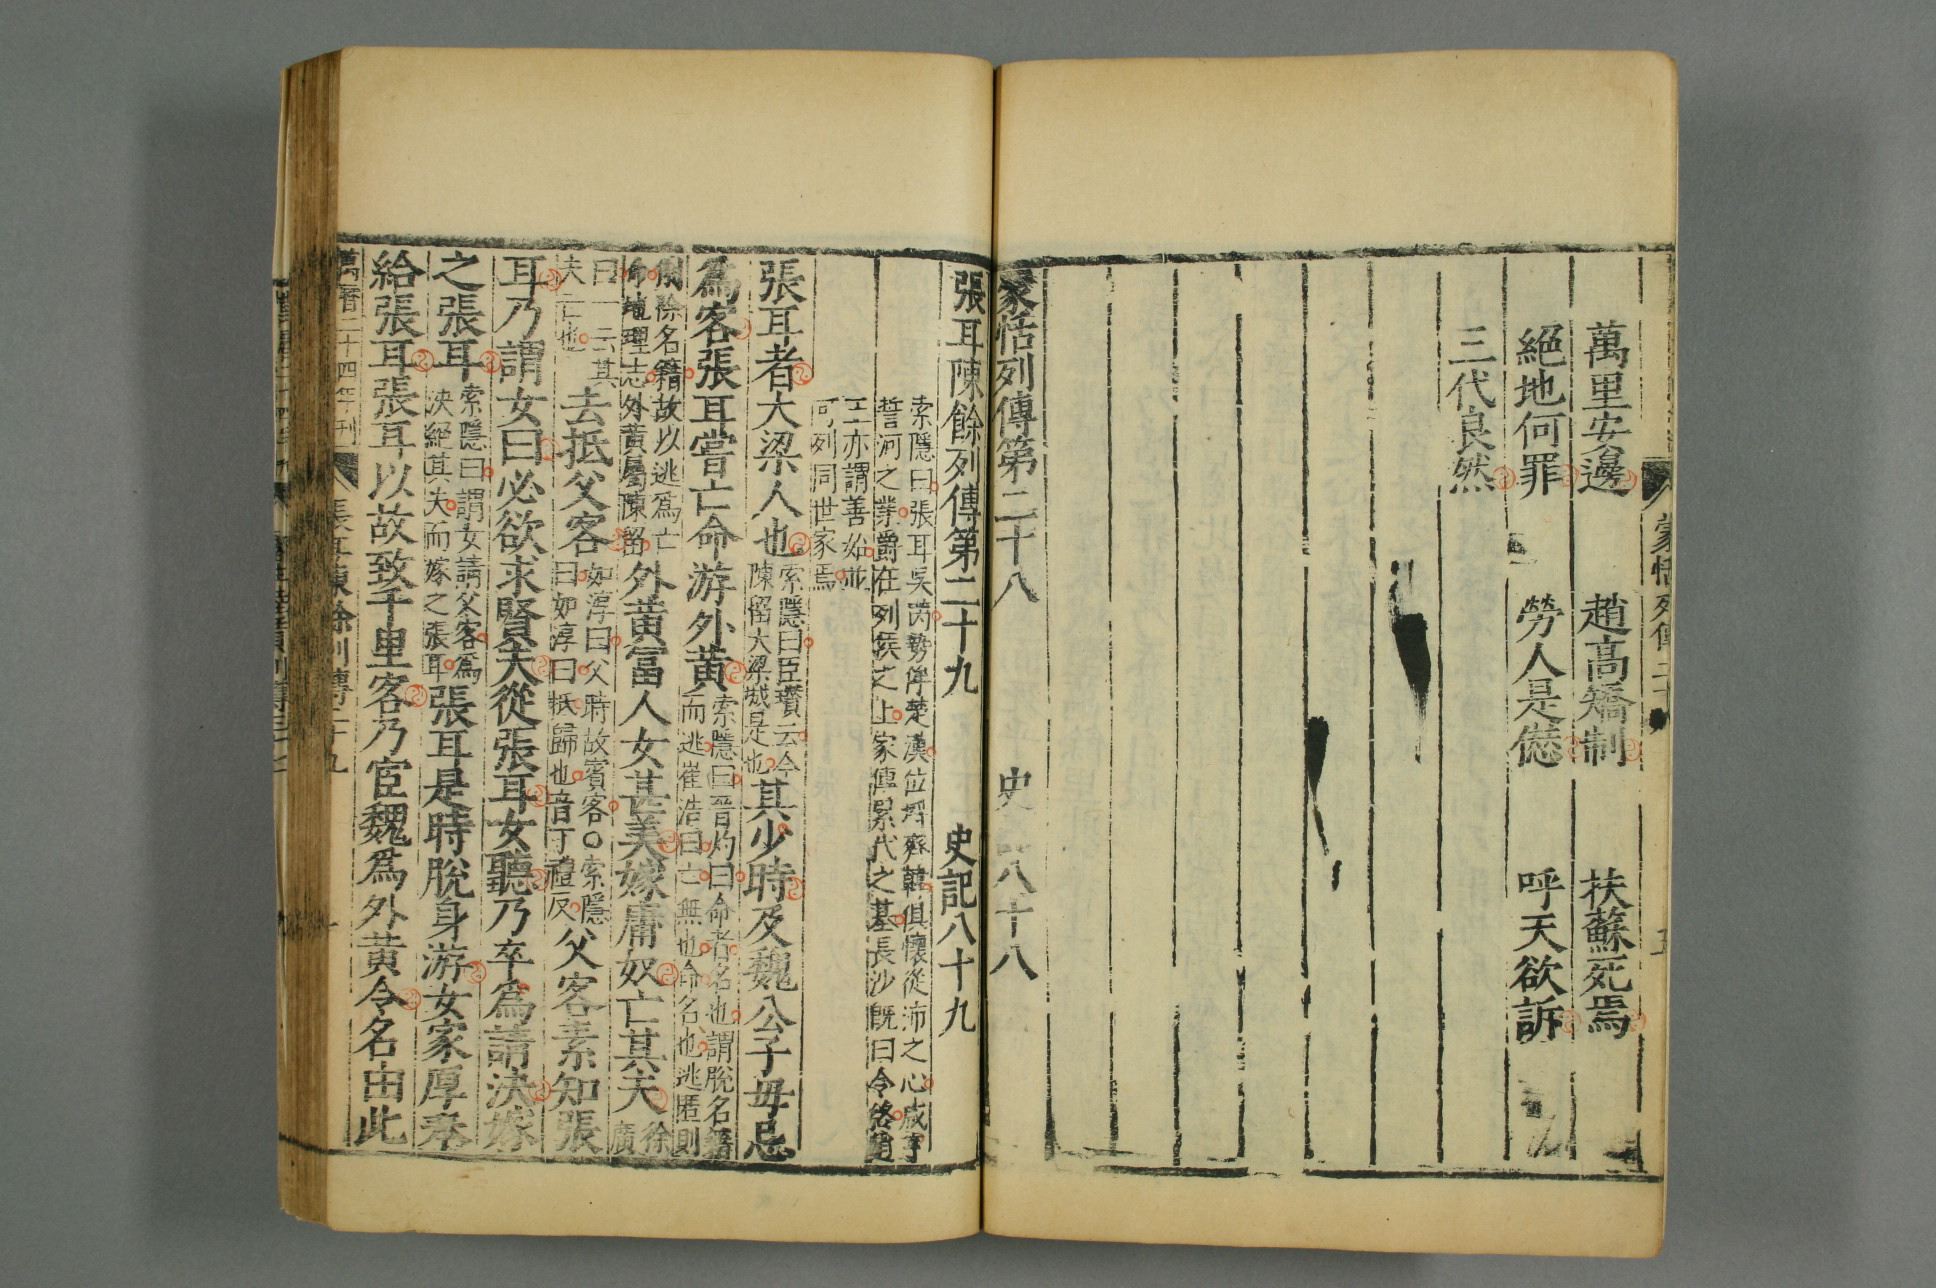 蒙恬列傳二十八
五
萬里安邊 趙高矯制 扶蘇死焉
絕地何罪 勞人是𠎝 呼天欲訴
三代良然
蒙恬列傳第二十八 史記八十八
張耳陳餘列傳第二十九 史記八十九
索隱曰張耳吳芮勢侔楚漢位埒齊韓俱懷從沛之心咸享
誓河之業爵在列侯之上家傳累代之基長沙既曰令終趙
王亦謂善始並
可列同世家焉
張耳者大梁人也索隱曰臣瓚云今陳留大梁城是也其少時及魏公子毋忌
爲客張耳嘗亡命游外黃索隱曰晉灼曰命者名也謂脫名籍而逃崔浩曰亡無也命名也逃匿則
削除名籍故以逃爲亡命地理志外黃屬陳留外黃富人女甚美嫁庸奴亡其夫徐廣
曰一云其夫亡也去抵父客如淳曰父時故賓客○索隱曰如淳曰抵歸也音丁禮反父客素知張
耳乃謂女曰必欲求賢夫從張耳女聽乃卒爲請決嫁
之張耳索隱曰謂女請父客爲決絕其夫而嫁之張耳張耳是時脫身游女家厚奉
給張耳張耳以故致千里客乃宦魏爲外黃令名由此
萬曆二十四年刊 張耳陳餘列傳二十九 一